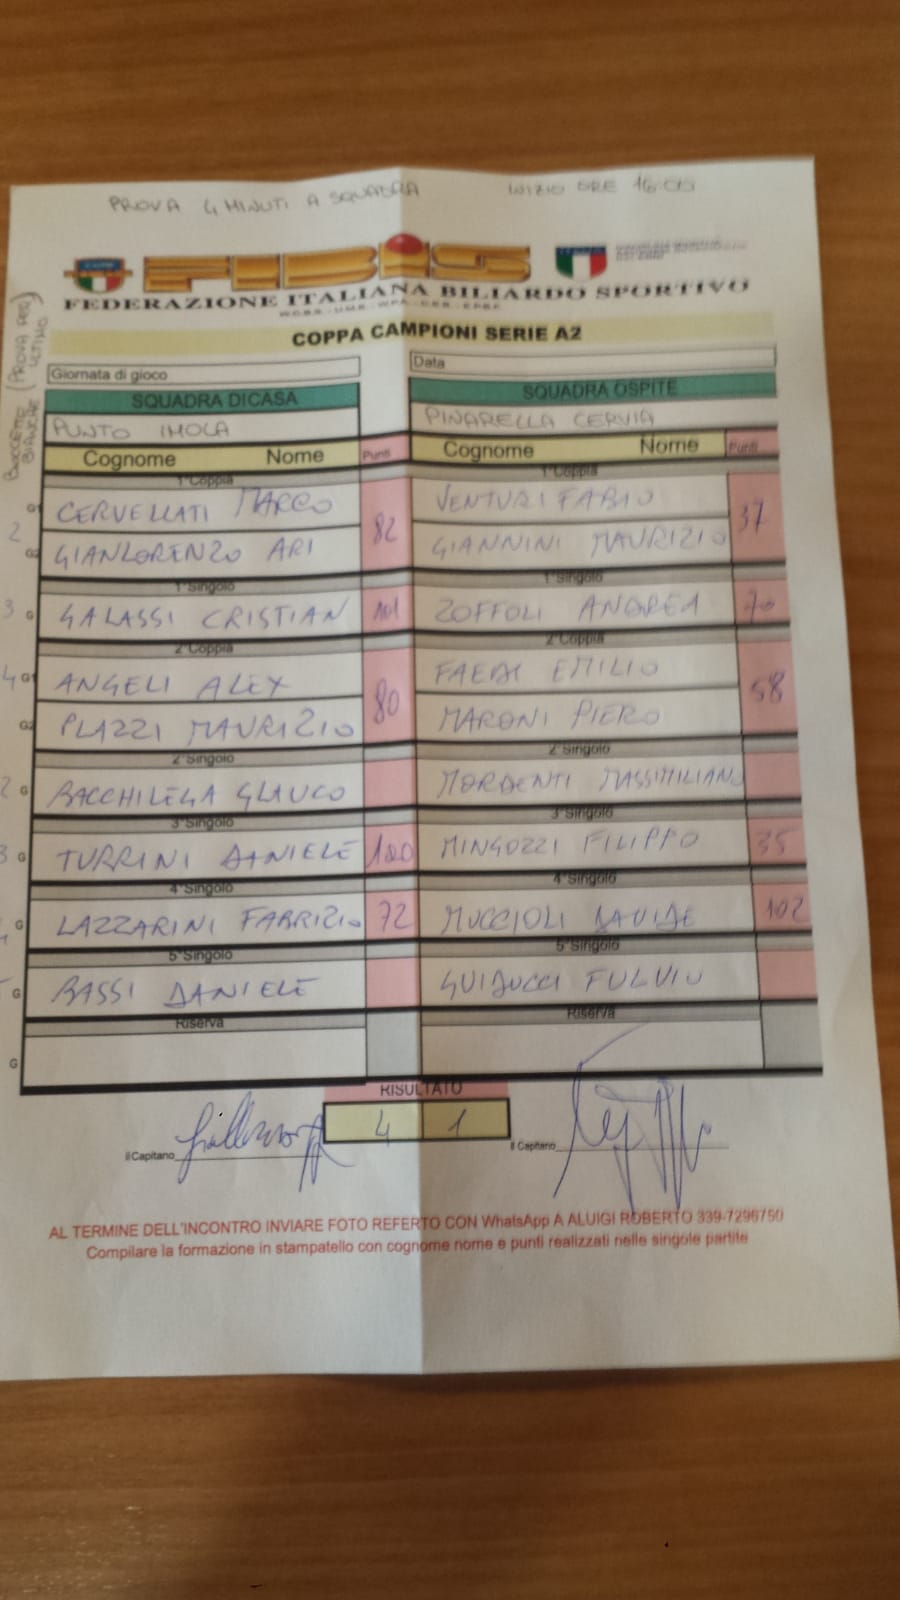 PROVA 4 MINUTI A SQUADRA INIZIO ORE 16:00
BOCCETTE BIANCHE (PROVA PER ULTIMO)
FIBIS
FEDERAZIONE ITALIANA BILIARDO SPORTIVO
COPPA CAMPIONI SERIE A2
Giornata di gioco Data
SQUADRA DI CASA SQUADRA OSPITE
PUNTO IMOLA PINARELLA CERVIA
Cognome Nome Punti Cognome Nome Punti
1°Coppia 1°Coppia
2 G1 CERVELLATI MARCO 82 VENTURI FABIO 37
G2 GIANLORENZO ARI GIANNINI MAURIZIO
1°Singolo 1°Singolo
3 G GALASSI CRISTIAN 101 ZOFFOLI ANDREA 70
2°Coppia 2°Coppia
4 G1 ANGELI ALEX 80 FAEDI EMILIO 58
G2 PLAZZI MAURIZIO MARONI PIERO
2°Singolo 2°Singolo
2 G BACCHILEGA GLAUCO MORDENTI MASSIMILIANO
3°Singolo 3°Singolo
3 G TURRINI DANIELE 100 MINGOZZI FILIPPO 35
4°Singolo 4°Singolo
G LAZZARINI FABRIZIO 72 MUCCIOLI DAVIDE 102
5°Singolo 5°Singolo
G BASSI DANIELE GUIDUCCI FULVIO
Riserva Riserva
G
RISULTATO
4 1
il Capitano il Capitano
AL TERMINE DELL'INCONTRO INVIARE FOTO REFERTO CON WhatsApp A ALUIGI ROBERTO 339-7296750
Compilare la formazione in stampatello con cognome nome e punti realizzati nelle singole partite